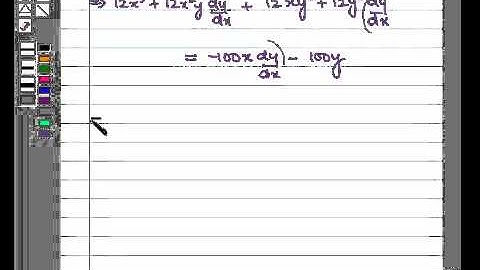 ⇒ 12x³ + 12x²y dy/dx + 12xy² + 12y³ dy/dx
= -100x dy/dx - 100y